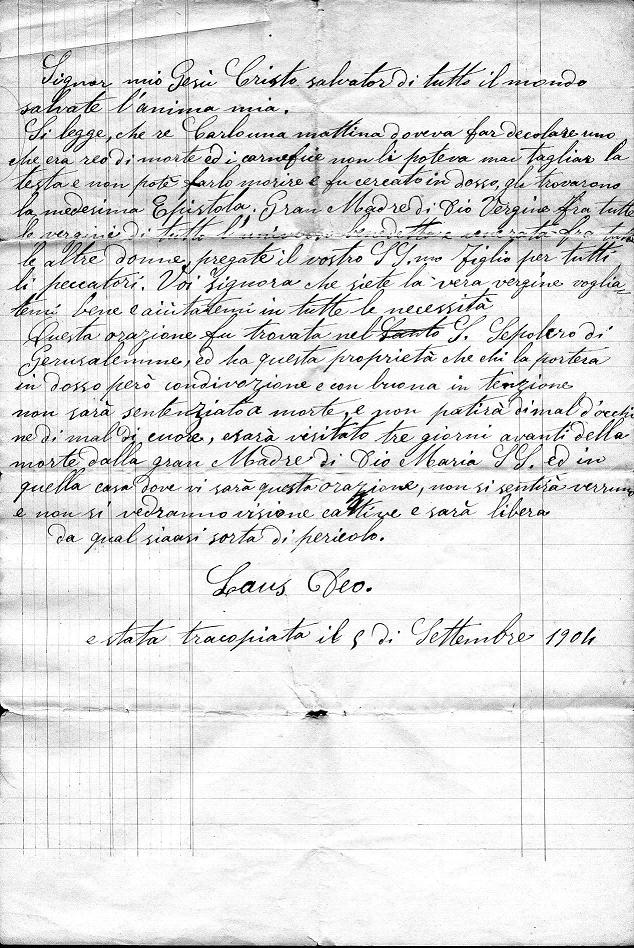 Signor mio Gesù Cristo salvator di tutto il mondo
salvate l'anima mia.
Si legge, che re Carlo una mattina doveva far decolare uno
che era reo di morte ed i carnefice non li poteva mai tagliar la
testa e non potè farlo morire e fu cercato in dosso, gli trovarono
la medesima Epistola. Gran Madre di Dio Vergine fra tutte
le vergini di tutto l' fra tutte
le altre donne, pregate il vostro SS.mo Figlio per tutti
li peccatori. Voi signora che siete la vera vergine voglia-
temi bene e aiutatemi in tutte le necessità
Questa orazione fu trovata nel Santo S. Sepolcro di
Gerusalemme, ed ha questa proprietà che chi la porterà
in dosso però con divozione e con buona in tenzione
non sarà sentenziato a morte, e non patirà di mal d'occhi
ne di mal di cuore, e sarà visitato tre giorni avanti della
morte dalla gran Madre di Dio Maria SS. ed in
quella casa dove vi sarà questa orazione, non si sentirà
e non si vedranno visione cattive e sarà libera
da qual siaasi sorta di pericolo.
Laus Deo.
e stata tracopiata il 5 di Settembre 1904